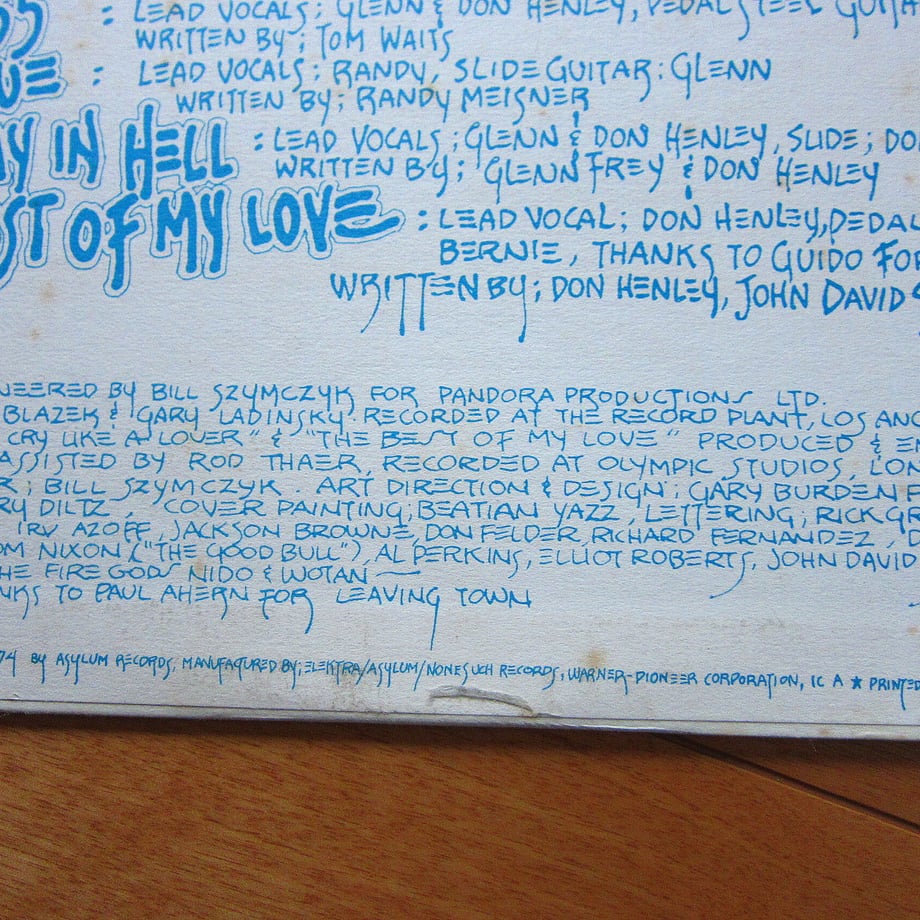 : LEAD VOCALS; GLENN & DON HENLEY, PEDAL STEEL GUITAR
WRITTEN BY; TOM WAITS
: LEAD VOCALS: RANDY, SLIDE GUITAR: GLENN
WRITTEN BY; RANDY MEISNER
AY IN HELL : LEAD VOCALS; GLENN & DON HENLEY, SLIDE; DO
WRITTEN BY; GLENN FREY & DON HENLEY
ST OF MY LOVE : LEAD VOCAL; DON HENLEY, PEDAL
BERNIE, THANKS TO GUIDO FOR
WRITTEN BY; DON HENLEY, JOHN DAVID
NEERED BY BILL SZYMCZYK FOR PANDORA PRODUCTIONS LTD.
BLAZEK & GARY LADINSKY. RECORDED AT THE RECORD PLANT, LOS ANG
CRY LIKE A LOVER" & "THE BEST OF MY LOVE" PRODUCED & E
ASSISTED BY ROD THAER, RECORDED AT OLYMPIC STUDIOS, LON
R; BILL SZYMCZYK. ART DIRECTION & DESIGN; GARY BURDEN F
RY DILTZ, COVER PAINTING; BEATIAN YAZZ, LETTERING; RICK GR
IRV AZOFF, JACKSON BROWNE, DON FELDER, RICHARD FERNANDEZ, D
OM NIXON ("THE GOOD BULL") AL PERKINS, ELLIOT ROBERTS, JOHN DAVID
HE FIRE GODS NIDO & WOTAN
NKS TO PAUL AHERN FOR LEAVING TOWN
74 BY ASYLUM RECORDS, MANUFAQURED BY; ELEKTRA/ASYLUM/NONESUCH RECORDS, WARNER-PIONEER CORPORATION, IC A ★ PRINTED